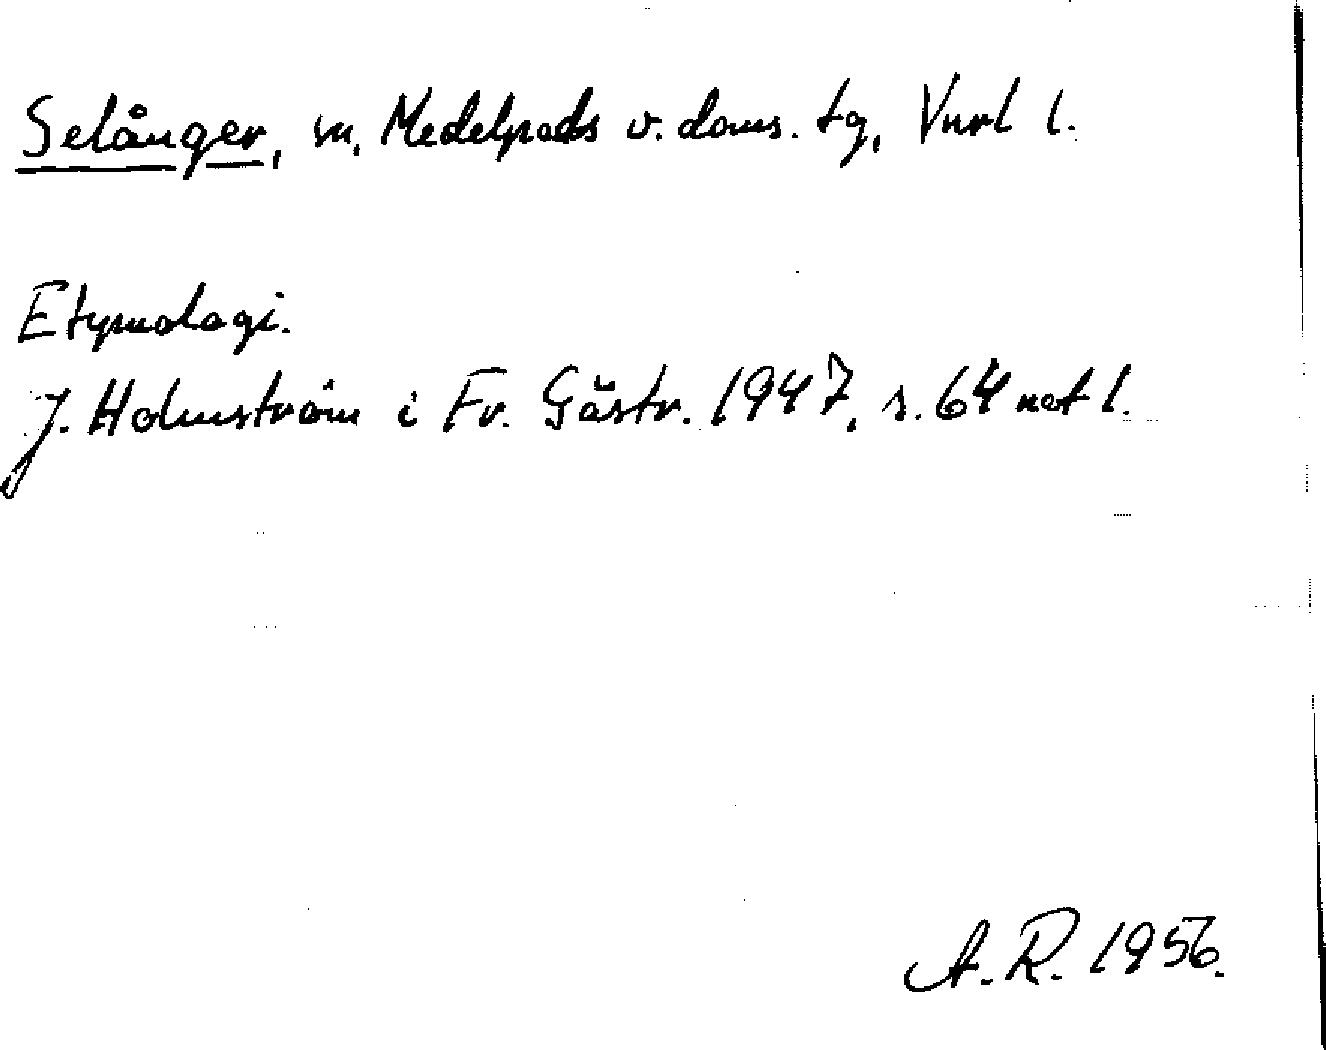 Selånger, sn, Medelpads v. doms. tg, Vnrl l.
Etymologi.
J. Holmström i Fr. Gästr. 1947, s. 64 not 1.
A.R. 1956.